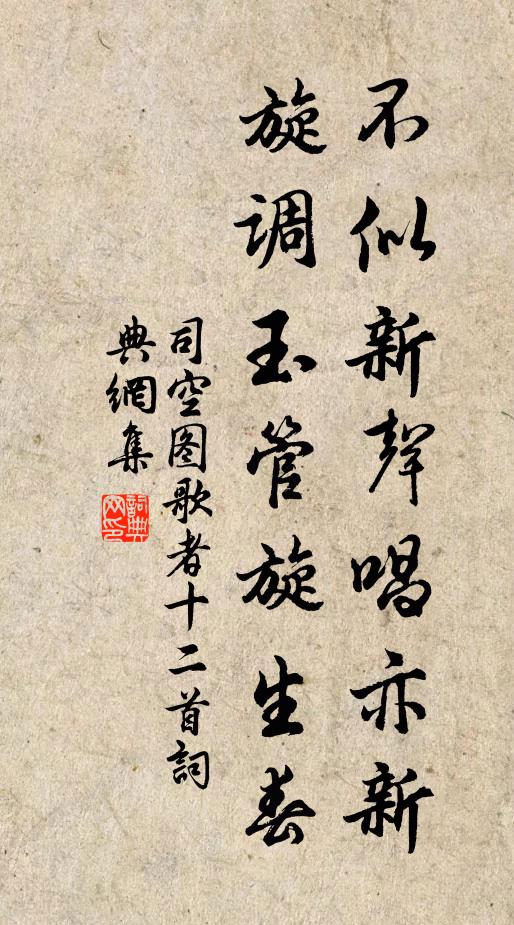 不似新聲唱亦新
旋调玉管旋生春
司空图歌者十二首詞
典網集
詞典网印